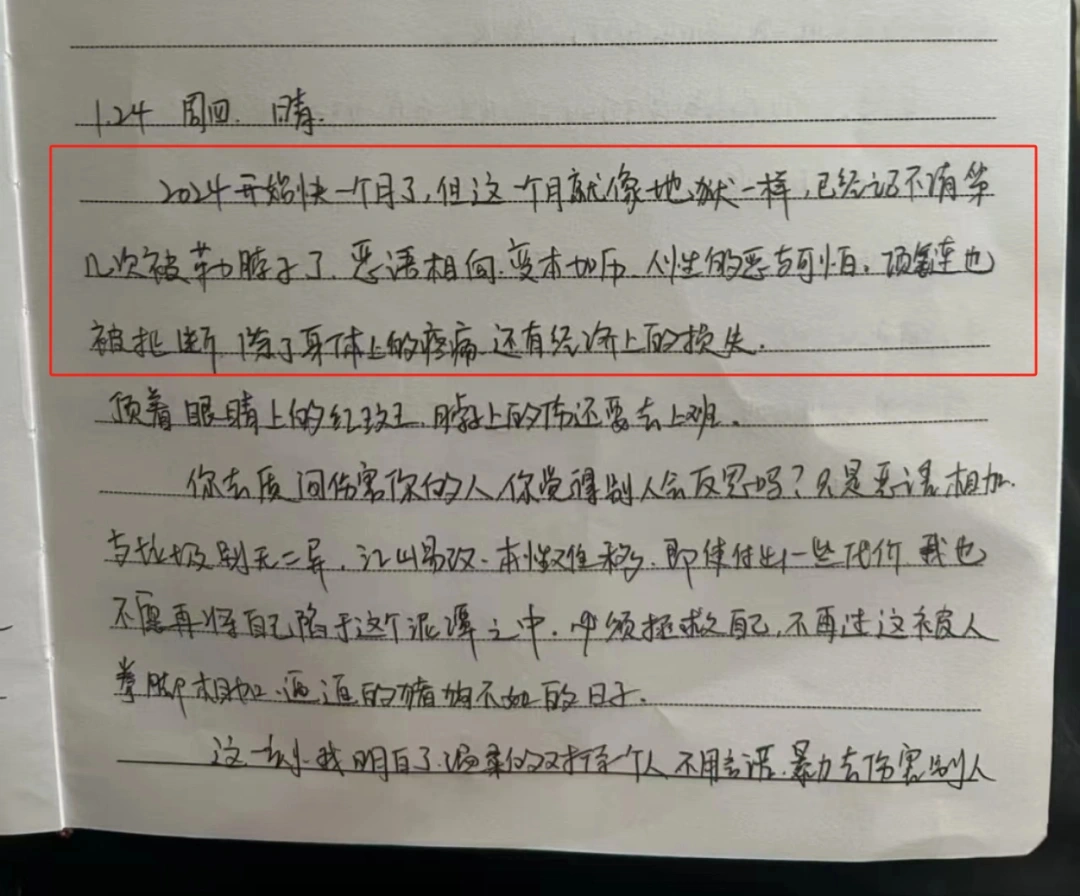 1.24 周四. 晴.
2024开始快一个月了,但这一个月就像地狱一样,已经记不清第
几次被勒脖子了.恶语相向.变本加厉.人性的恶与可怕。项链也
被扯断 除了身体上的疼痛.还有经济上的损失.
顶着眼睛上的红斑.脖子上的伤还要去上班。
你去质问伤害你的人,你觉得别人会反思吗?只是恶语相加.
与垃圾别无二异.江山易改.本性难移.即使付出一些代价 我也
不愿再将自己陷于这个泥潭之中.必须拯救自己,不再过这被人
拳脚相加.逼逼的猪狗不如的日子.
这一刻.我明白了.温柔的对待一个人 不用言语.暴力去伤害别人